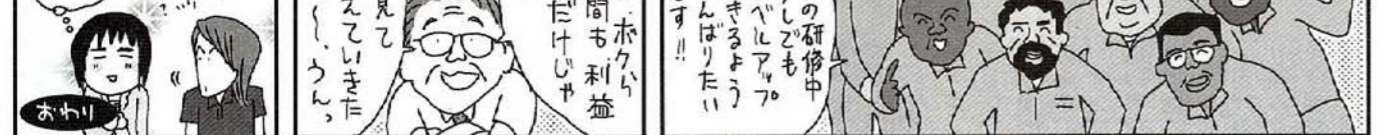 の研修中
しでも
ベルアップ
きるよう
んばりたい
す!!
ボクら
間も利益
だけじゃ
見て
えていきた
〜、うんっ
おわり